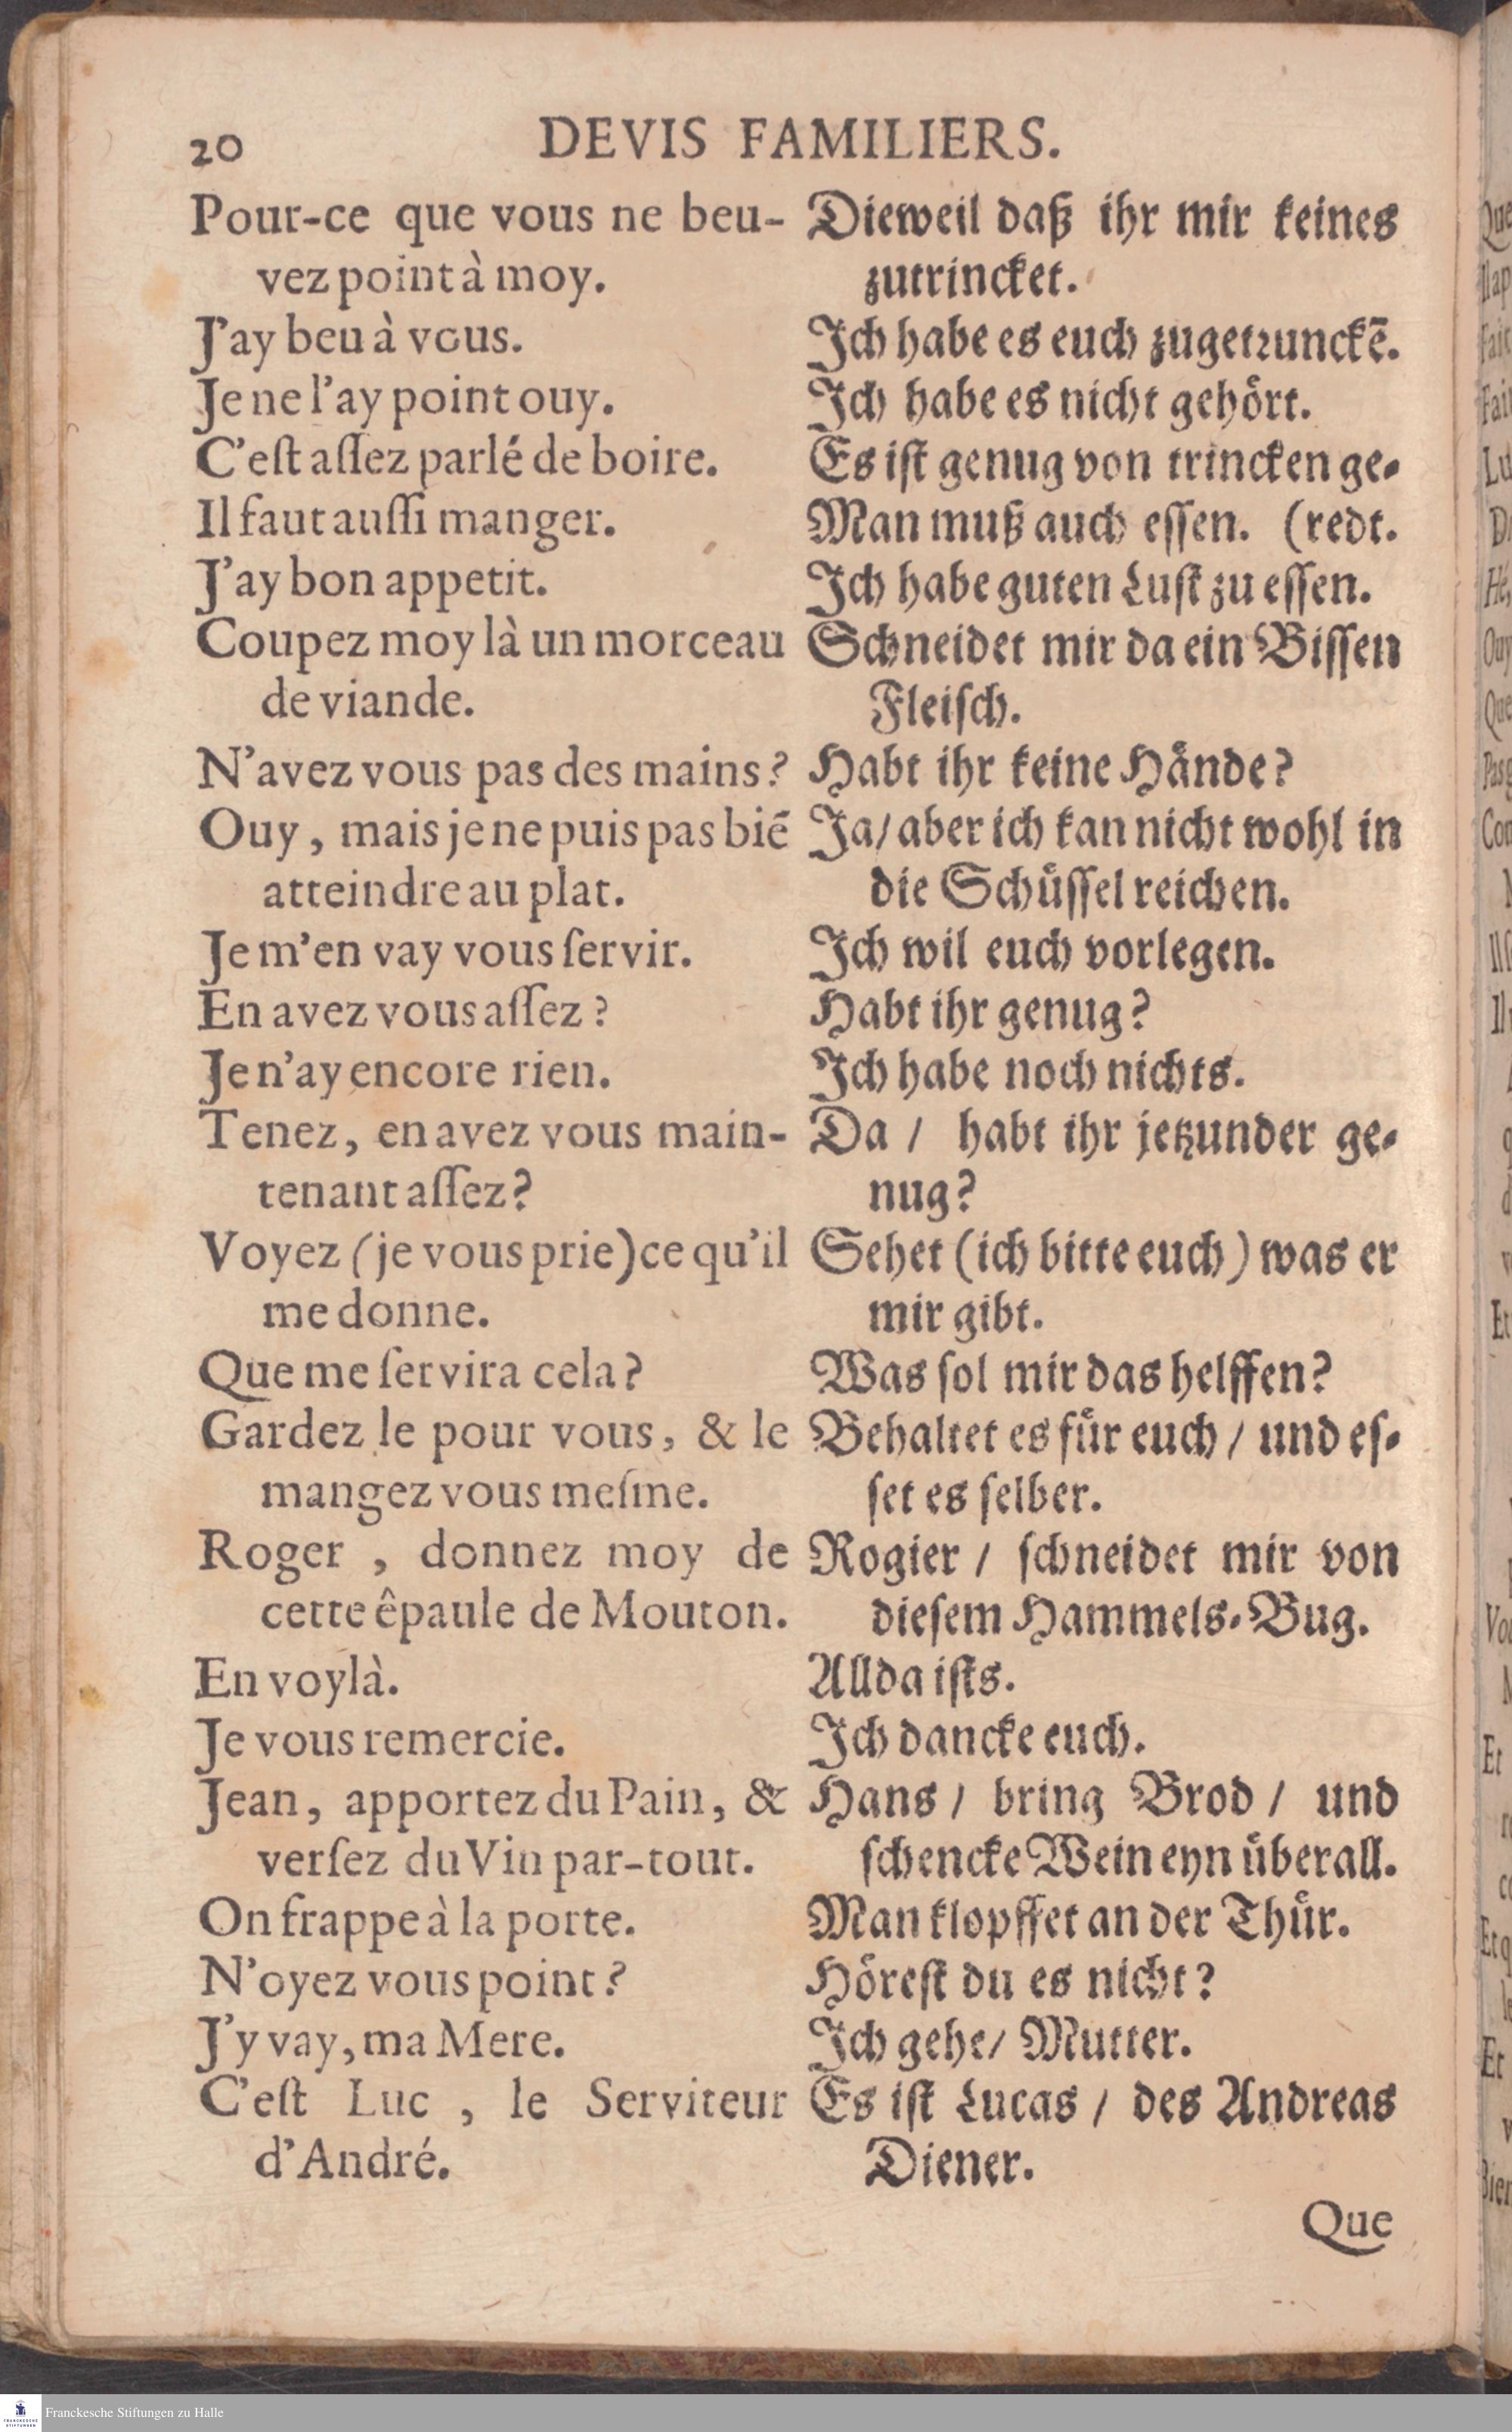 20
DEVIS FAMILIERS.
Pour-ce que vous ne beu-
vez point à moy.
J'ay beu à vous.
Je ne l'ay point ouy.
C'eſt aſſez parlé de boire.
Il faut auſſi manger.
J'ay bon appetit.
Coupez moy là un morceau
de viande.
N'avez vous pas des mains?
Ouy, mais je ne puis pas biē
atteindre au plat.
Je m'en vay vous ſervir.
En avez vous aſſez?
Je n'ay encore rien.
Tenez, en avez vous main-
tenant aſſez?
Voyez (je vous prie) ce qu'il
me donne.
Que me ſervira cela?
Gardez le pour vous, & le
mangez vous meſme.
Roger, donnez moy de
cette êpaule de Mouton.
En voylà.
Je vous remercie.
Jean, apportez du Pain, &
verſez du Vin par-tout.
On frappe à la porte.
N'oyez vous point?
J'y vay, ma Mere.
C'eſt Luc, le Serviteur
d'André.
Dieweil daß ihr mir keines
zutrincket.
Ich habe es euch zugetꝛunckē.
Ich habe es nicht gehoͤrt.
Es iſt genug von trincken ge-
Man muß auch eſſen. (redt.
Ich habe guten Luſt zu eſſen.
Schneidet mir da ein Biſſen
Fleiſch.
Habt ihr keine Haͤnde?
Ja/ aber ich kan nicht wohl in
die Schuͤſſel reichen.
Ich wil euch vorlegen.
Habt ihr genug?
Ich habe noch nichts.
Da / habt ihr jetzunder ge-
nug?
Sehet (ich bitte euch) was er
mir gibt.
Was ſol mir das helffen?
Behaltet es fuͤr euch / und eſ-
ſet es ſelber.
Rogier / ſchneidet mir von
dieſem Hammels-Bug.
Allda iſts.
Ich dancke euch.
Hans / bring Brod / und
ſchencke Wein eyn uͤberall.
Man klopffet an der Thuͤr.
Hoͤreſt du es nicht?
Ich gehe/ Mutter.
Es iſt Lucas / des Andreas
Diener.
Que
Franckesche Stiftungen zu Halle